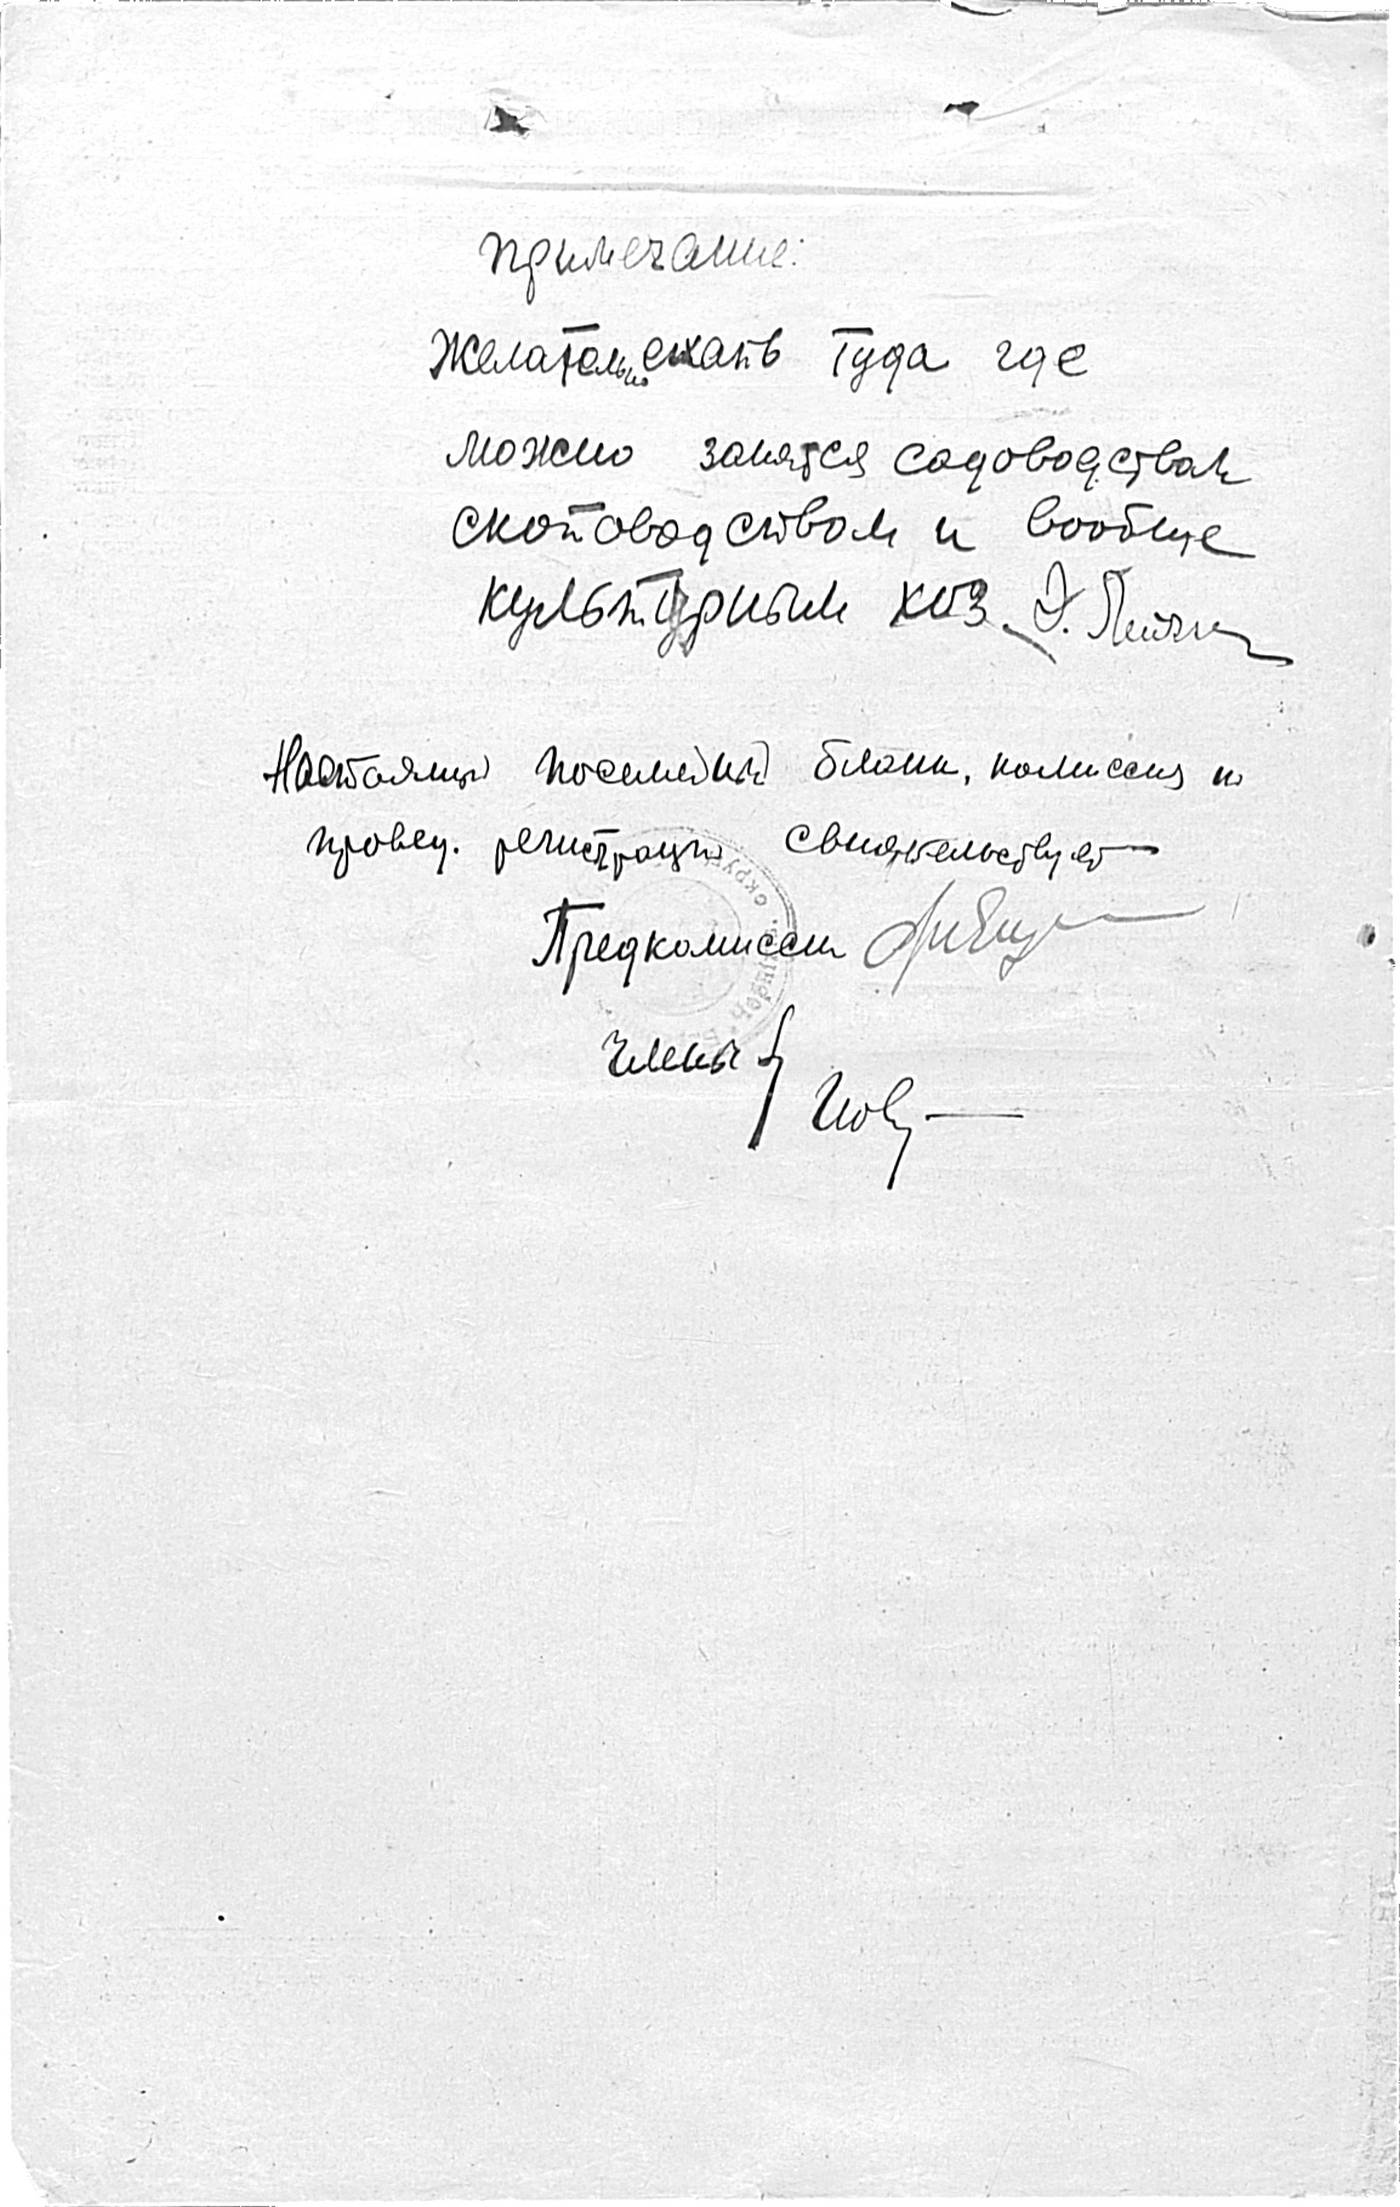 Примечание:
Желательно ехать туда где
можно занятся садоводствам
скотоводством и вообще
культурным хоз.
Настоящий посемейный бланк, комиссия по
провед. регистрации свидетельствует
Предкомиссии
Члены